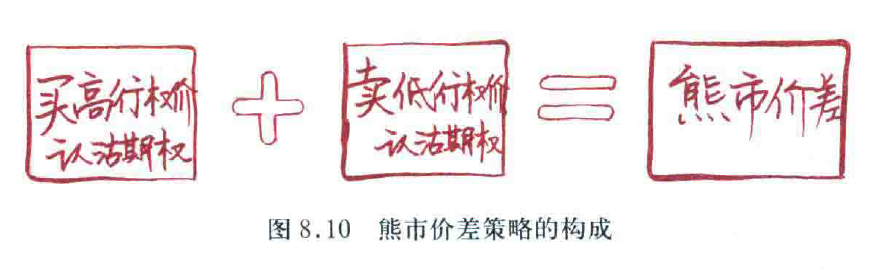 买高行权价
认沽期权
+
卖低行权价
认沽期权
=
熊市价差
图 8.10 熊市价差策略的构成